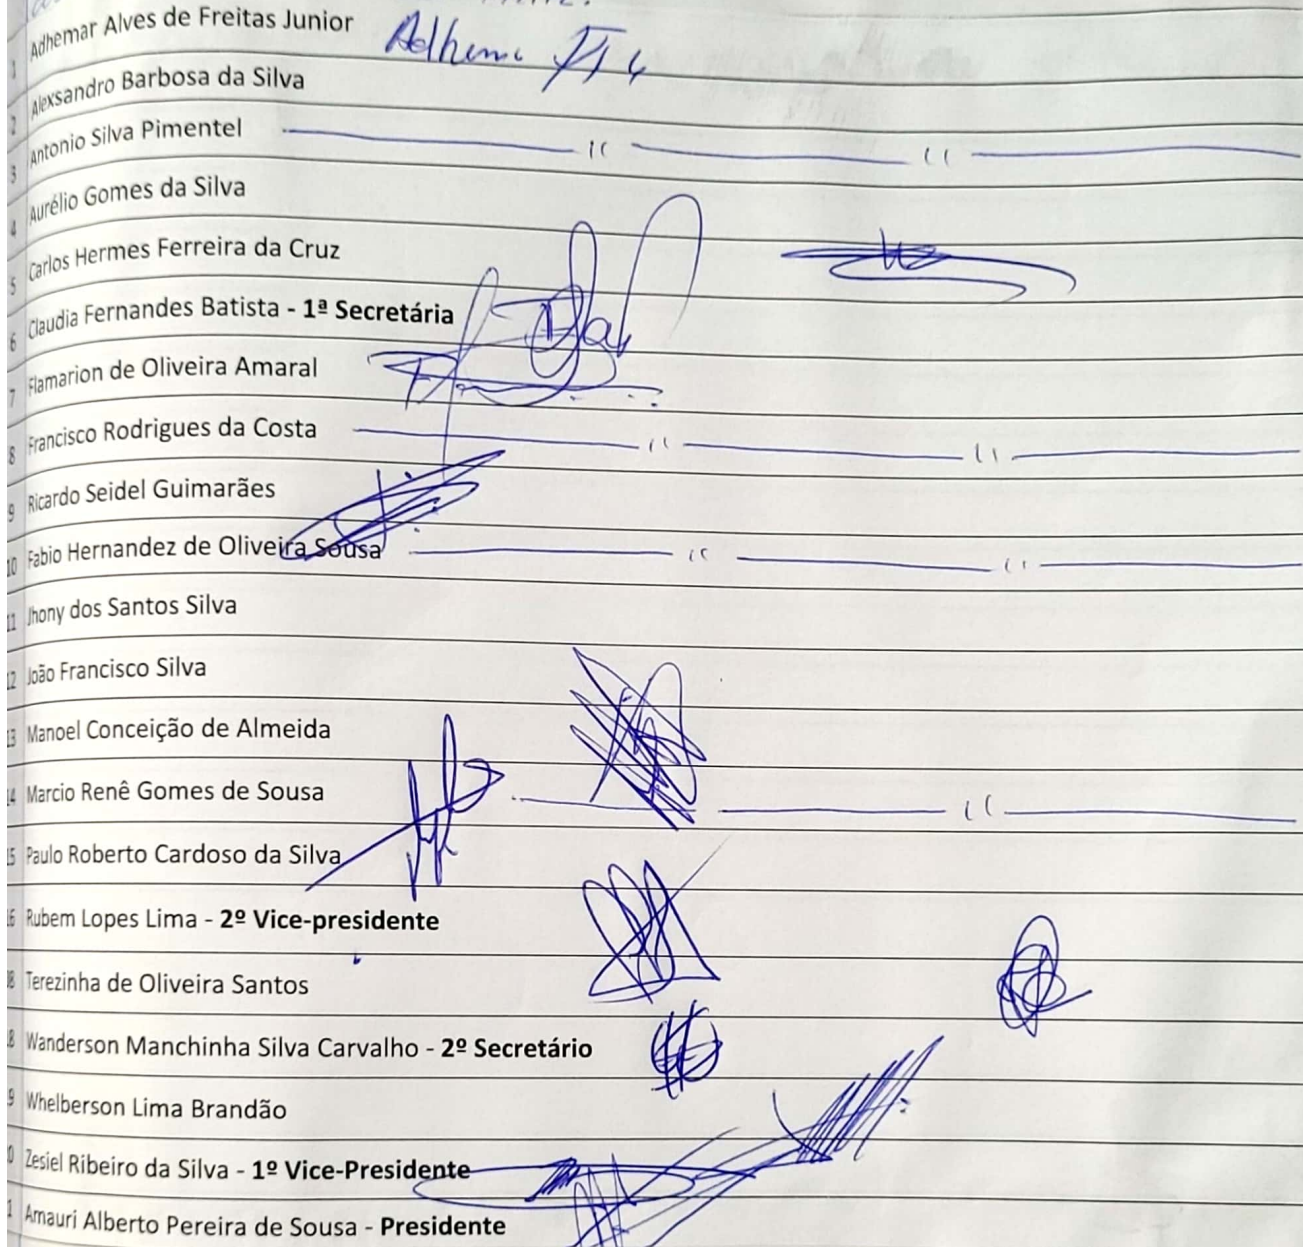 1 Adhemar Alves de Freitas Junior Adhemar
2 Alexsandro Barbosa da Silva
3 Antonio Silva Pimentel
4 Aurélio Gomes da Silva
5 Carlos Hermes Ferreira da Cruz
6 Claudia Fernandes Batista - 1ª Secretária
7 Flamarion de Oliveira Amaral
8 Francisco Rodrigues da Costa
9 Ricardo Seidel Guimarães
10 Fabio Hernandez de Oliveira Sousa
11 Jhony dos Santos Silva
12 João Francisco Silva
13 Manoel Conceição de Almeida
14 Marcio Renê Gomes de Sousa
15 Paulo Roberto Cardoso da Silva
16 Rubem Lopes Lima - 2º Vice-presidente
18 Terezinha de Oliveira Santos
8 Wanderson Manchinha Silva Carvalho - 2º Secretário
9 Whelberson Lima Brandão
0 Zesiel Ribeiro da Silva - 1º Vice-Presidente
1 Amauri Alberto Pereira de Sousa - Presidente